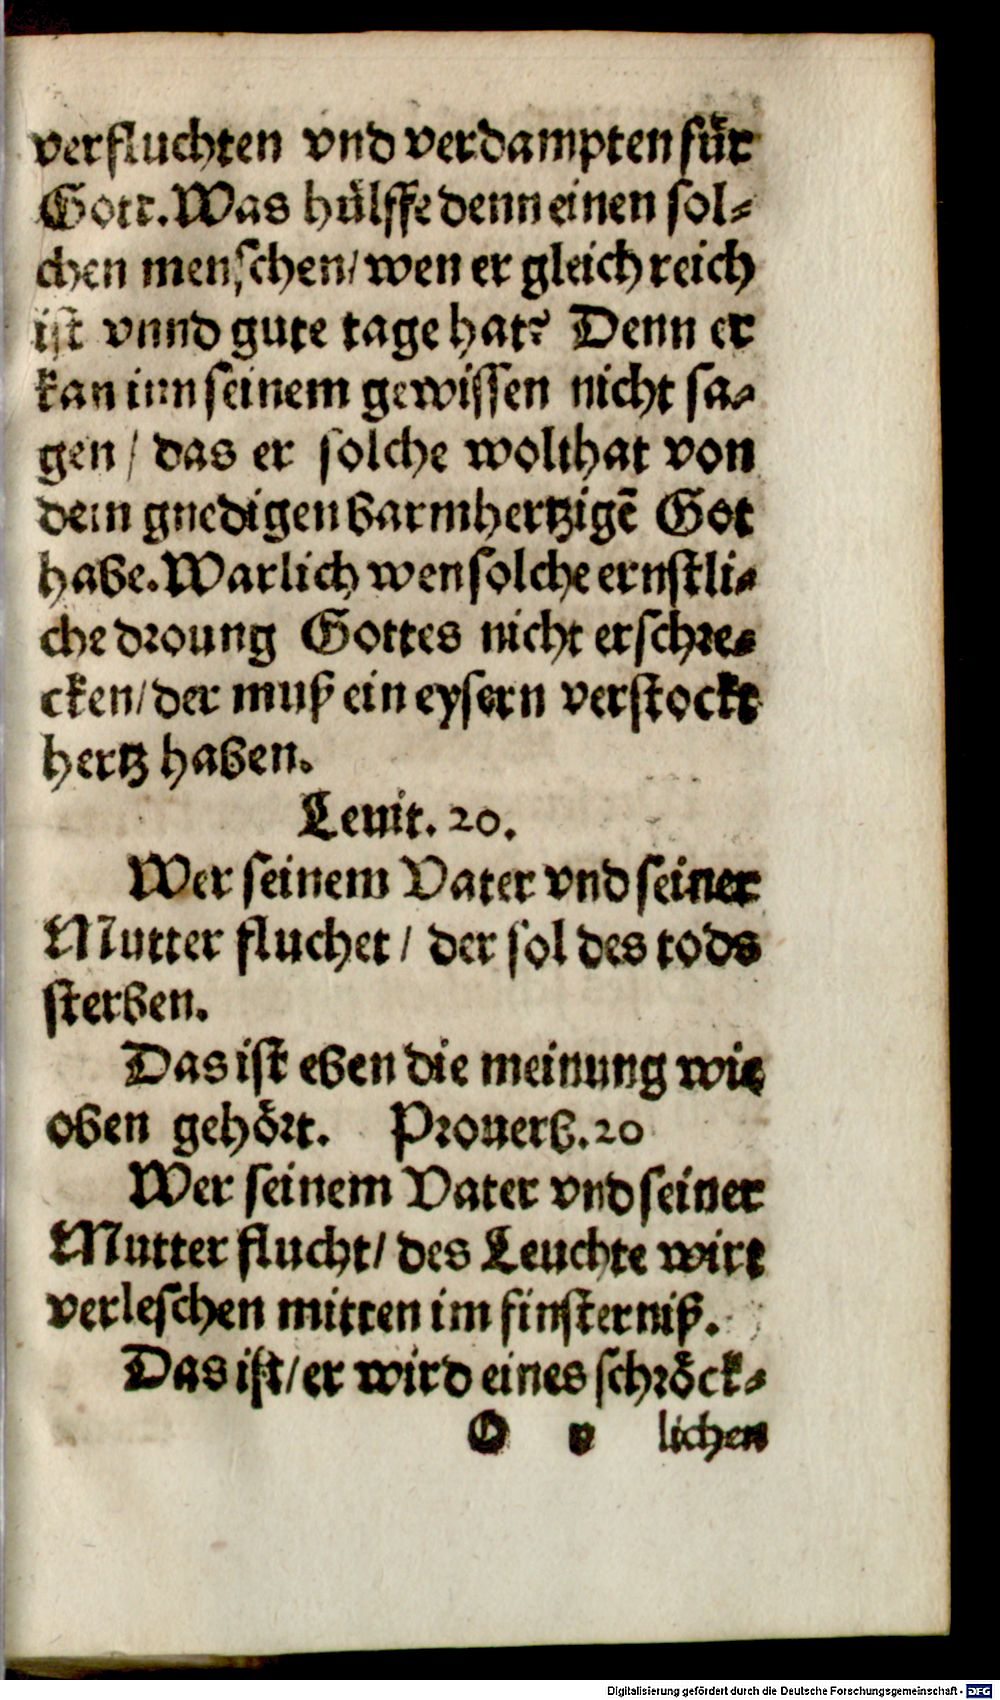 verfluchten vnd verdampten für
Gott. Was hülffe denn einen sol⸗
chen menschen/ wen er gleich reich
ist vnnd gute tage hat? Denn er
kan inn seinem gewissen nicht sa⸗
gen/ das er solche wolthat von
dem gnedigen barmhertzigē Got
habe. Warlich wen solche ernstli⸗
che droung Gottes nicht erschre⸗
cken/ der muß ein eysern verstockt
hertz haben.
Leuit. 20.
Wer seinem Vater vnd seiner
Mutter fluchet/ der sol des tods
sterben.
Das ist eben die meinung wie
oben gehört. Prouerb. 20
Wer seinem Vater vnd seiner
Mutter flucht/ des Leuchte wirt
verleschen mitten im finsterniß.
Das ist/ er wird eines schröck⸗
O v lichen
Digitalisierung gefördert durch die Deutsche Forschungsgemeinschaft - DFG